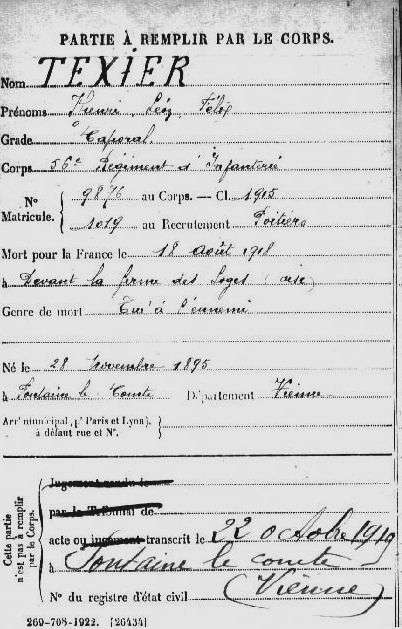 PARTIE À REMPLIR PAR LE CORPS.
Nom TEXIER
Prénoms Henri, Léo, Félix
Grade Caporal
Corps 56e Régiment d'Infanterie
N° Matricule. { 9876 au Corps. — Cl. 1915
1019 au Recrutement Poitiers
Mort pour la France le 18 août 1918
à Devant la ferme des Loges (oise)
Genre de mort Tué à l'ennemi
Né le 28 Novembre 1895
à Fontaine le Comte Département Vienne
Arr^t municipal (p^r Paris et Lyon), à défaut rue et N°. {
Cette partie n'est pas à remplir par le Corps.
Jugement rendu le
par le Tribunal de
acte ou jugement transcrit le 22 octobre 1919
à Fontaine le comte
(Vienne)
N° du registre d'état civil
269-708-1922. [26434]